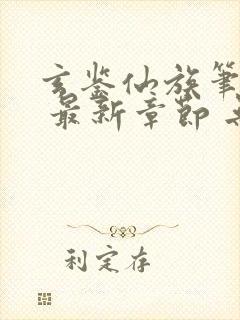 玄鉴仙族笔
最新章节
利定存